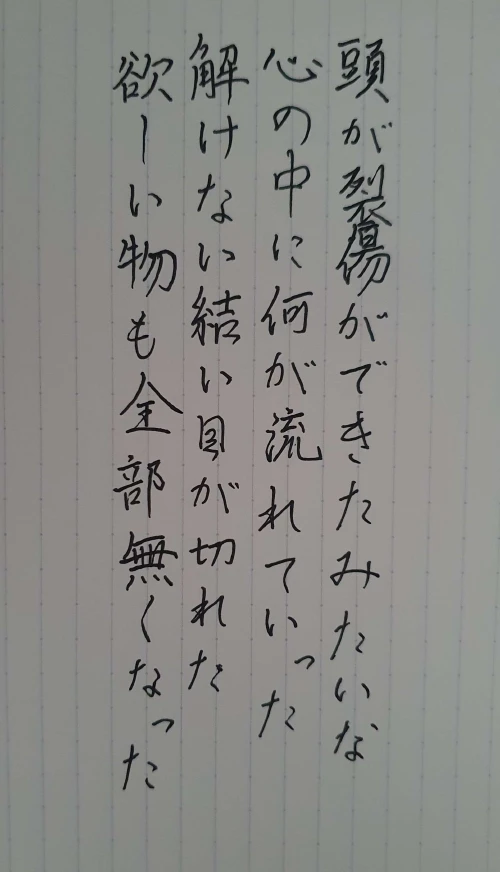 頭が裂傷ができたみたいな
心の中に何が流れていった
解けない結い目が切れた
欲しい物も全部無くなった